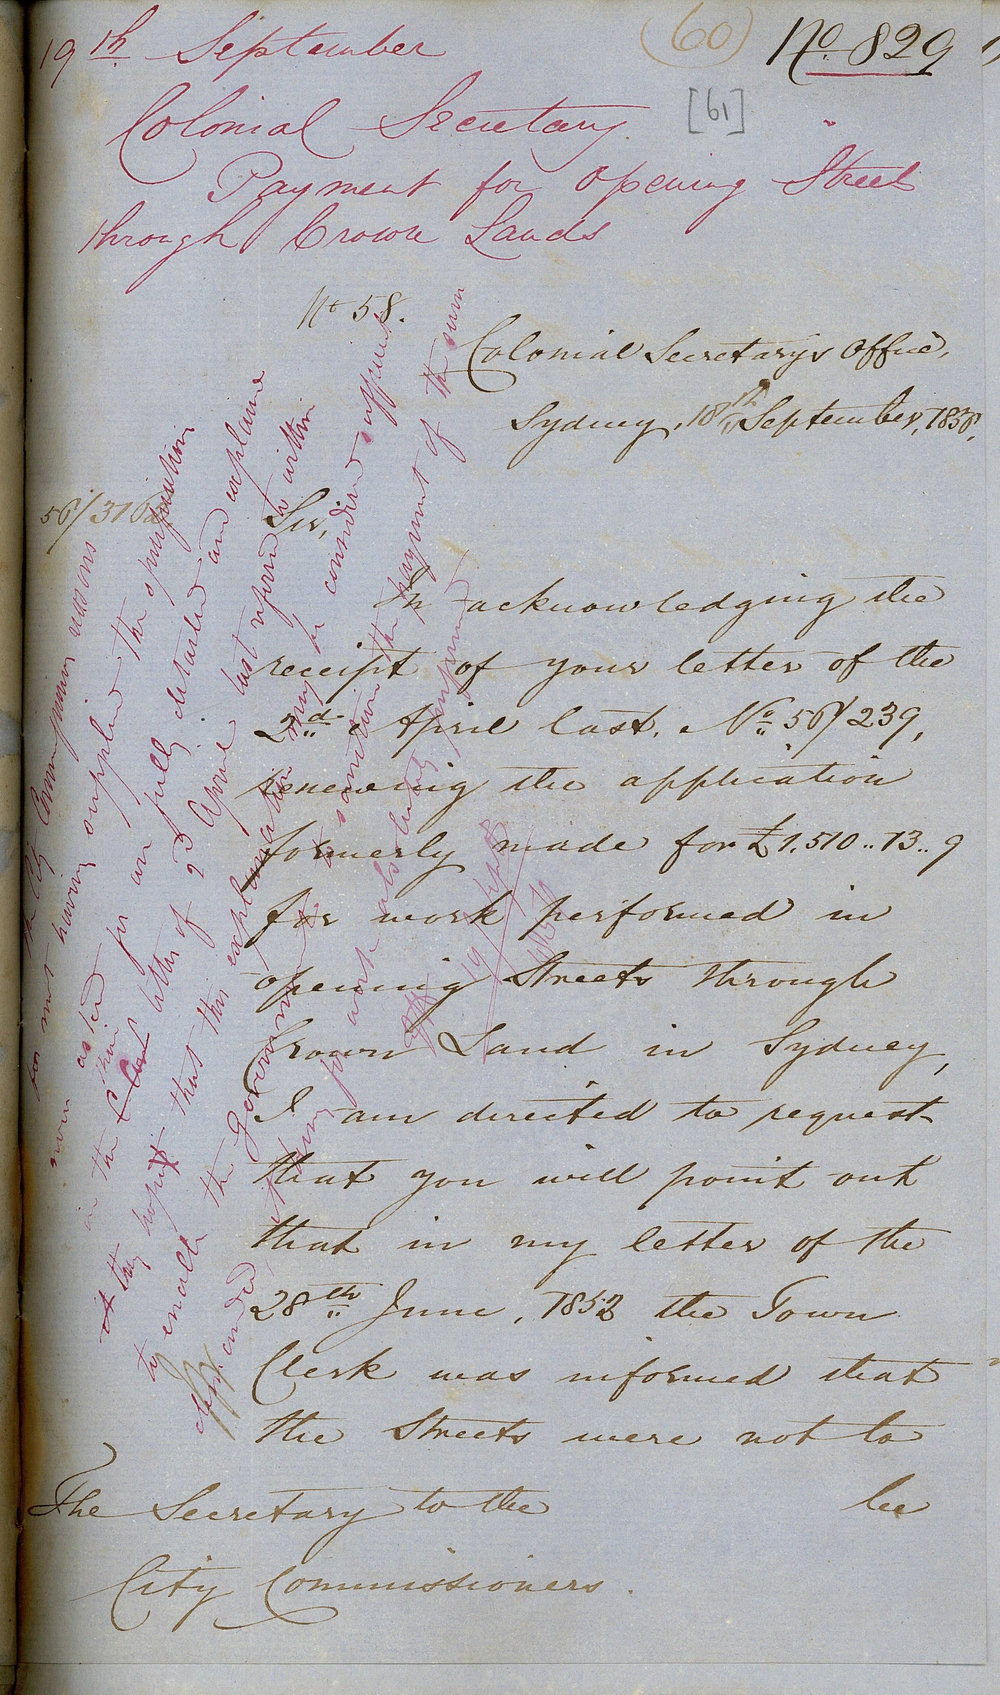 19th September
(60) No. 829
[61]
Colonial Secretary
Payment for Opening Street
through Crown Lands
No 58.
Colonial Secretary's Office,
Sydney, 18th September, 1856.
56/3162
Sir,
In acknowledging the
receipt of your letter of the
2nd April last. No. 56/239,
renewing the application
formerly made for £1,510..13..9
for work performed in
opening Streets through
Crown Land in Sydney,
I am directed to request
that you will point out
that in my letter of the
28th June, 1852 the Town
Clerk was informed that
the Streets were not to
be
The Secretary to the
City Commissioners.
the City Commissioners reasons
for not having supplied the information
now asked for are fully detailed and explained
in the letter of 2d April last referred to within
it may be hoped that this explanation may be considered sufficient
to enable the Government to sanction the payment of the sum
expended, it being for work absolutely performed
19 Sept
1856